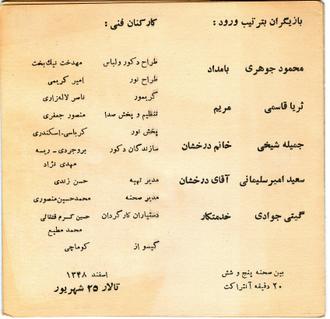 بازیگران بترتیب ورود :
محمود جوهری بامداد
ثریا قاسمی مریم
جمیله شیخی خانم درخشان
سعید امیرسلیمانی آقای درخشان
گیتی جوادی خدمتکار
بین صحنه پنج و شش
۲۰ دقیقه آنتراکت
کارکنان فنی :
طراح دکور ولباس مهدخت نیک‌بخت
طراح نور امیر کریمی
گریمور ناصر لاله‌زاری
تنظیم و پخش صدا منصور جعفری
پخش نور کرباسی-اسکندری
سازندگان دکور بروجردی-ریسه
مهدی نژاد
مدیر تهیه حسن زندی
مدیر صحنه محمدحسین‌منصوری
دستیاران کارگردان حسین کرم
محمد مطیع
گیسو از کوماچی
اسفند ۱۳۴۸
تالار ۲۵ شهریور